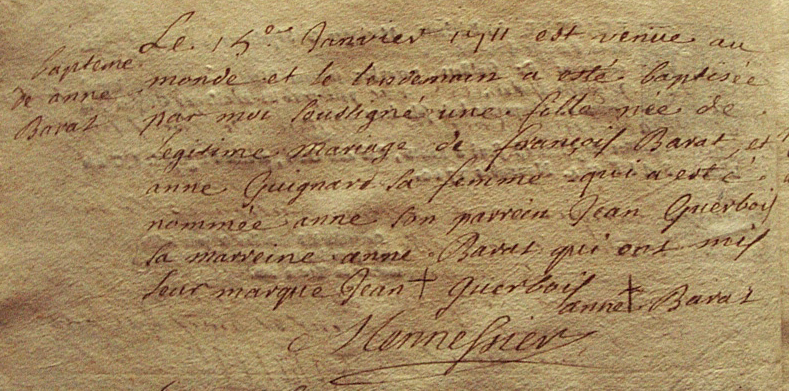 bapteme
de anne
Barat
Le 15e Janvier 1711 est venüe au
monde et le lendemain a esté baptisée
par moi soussigné une fille née de
legitime mariage de françois Barat et
anne Guignard sa femme qui a esté
nommée anne son parrein Jean Querbois
la marreine anne Barat qui ont mis
leur marque Jean + Querbois
anne + Barat
Monnessier